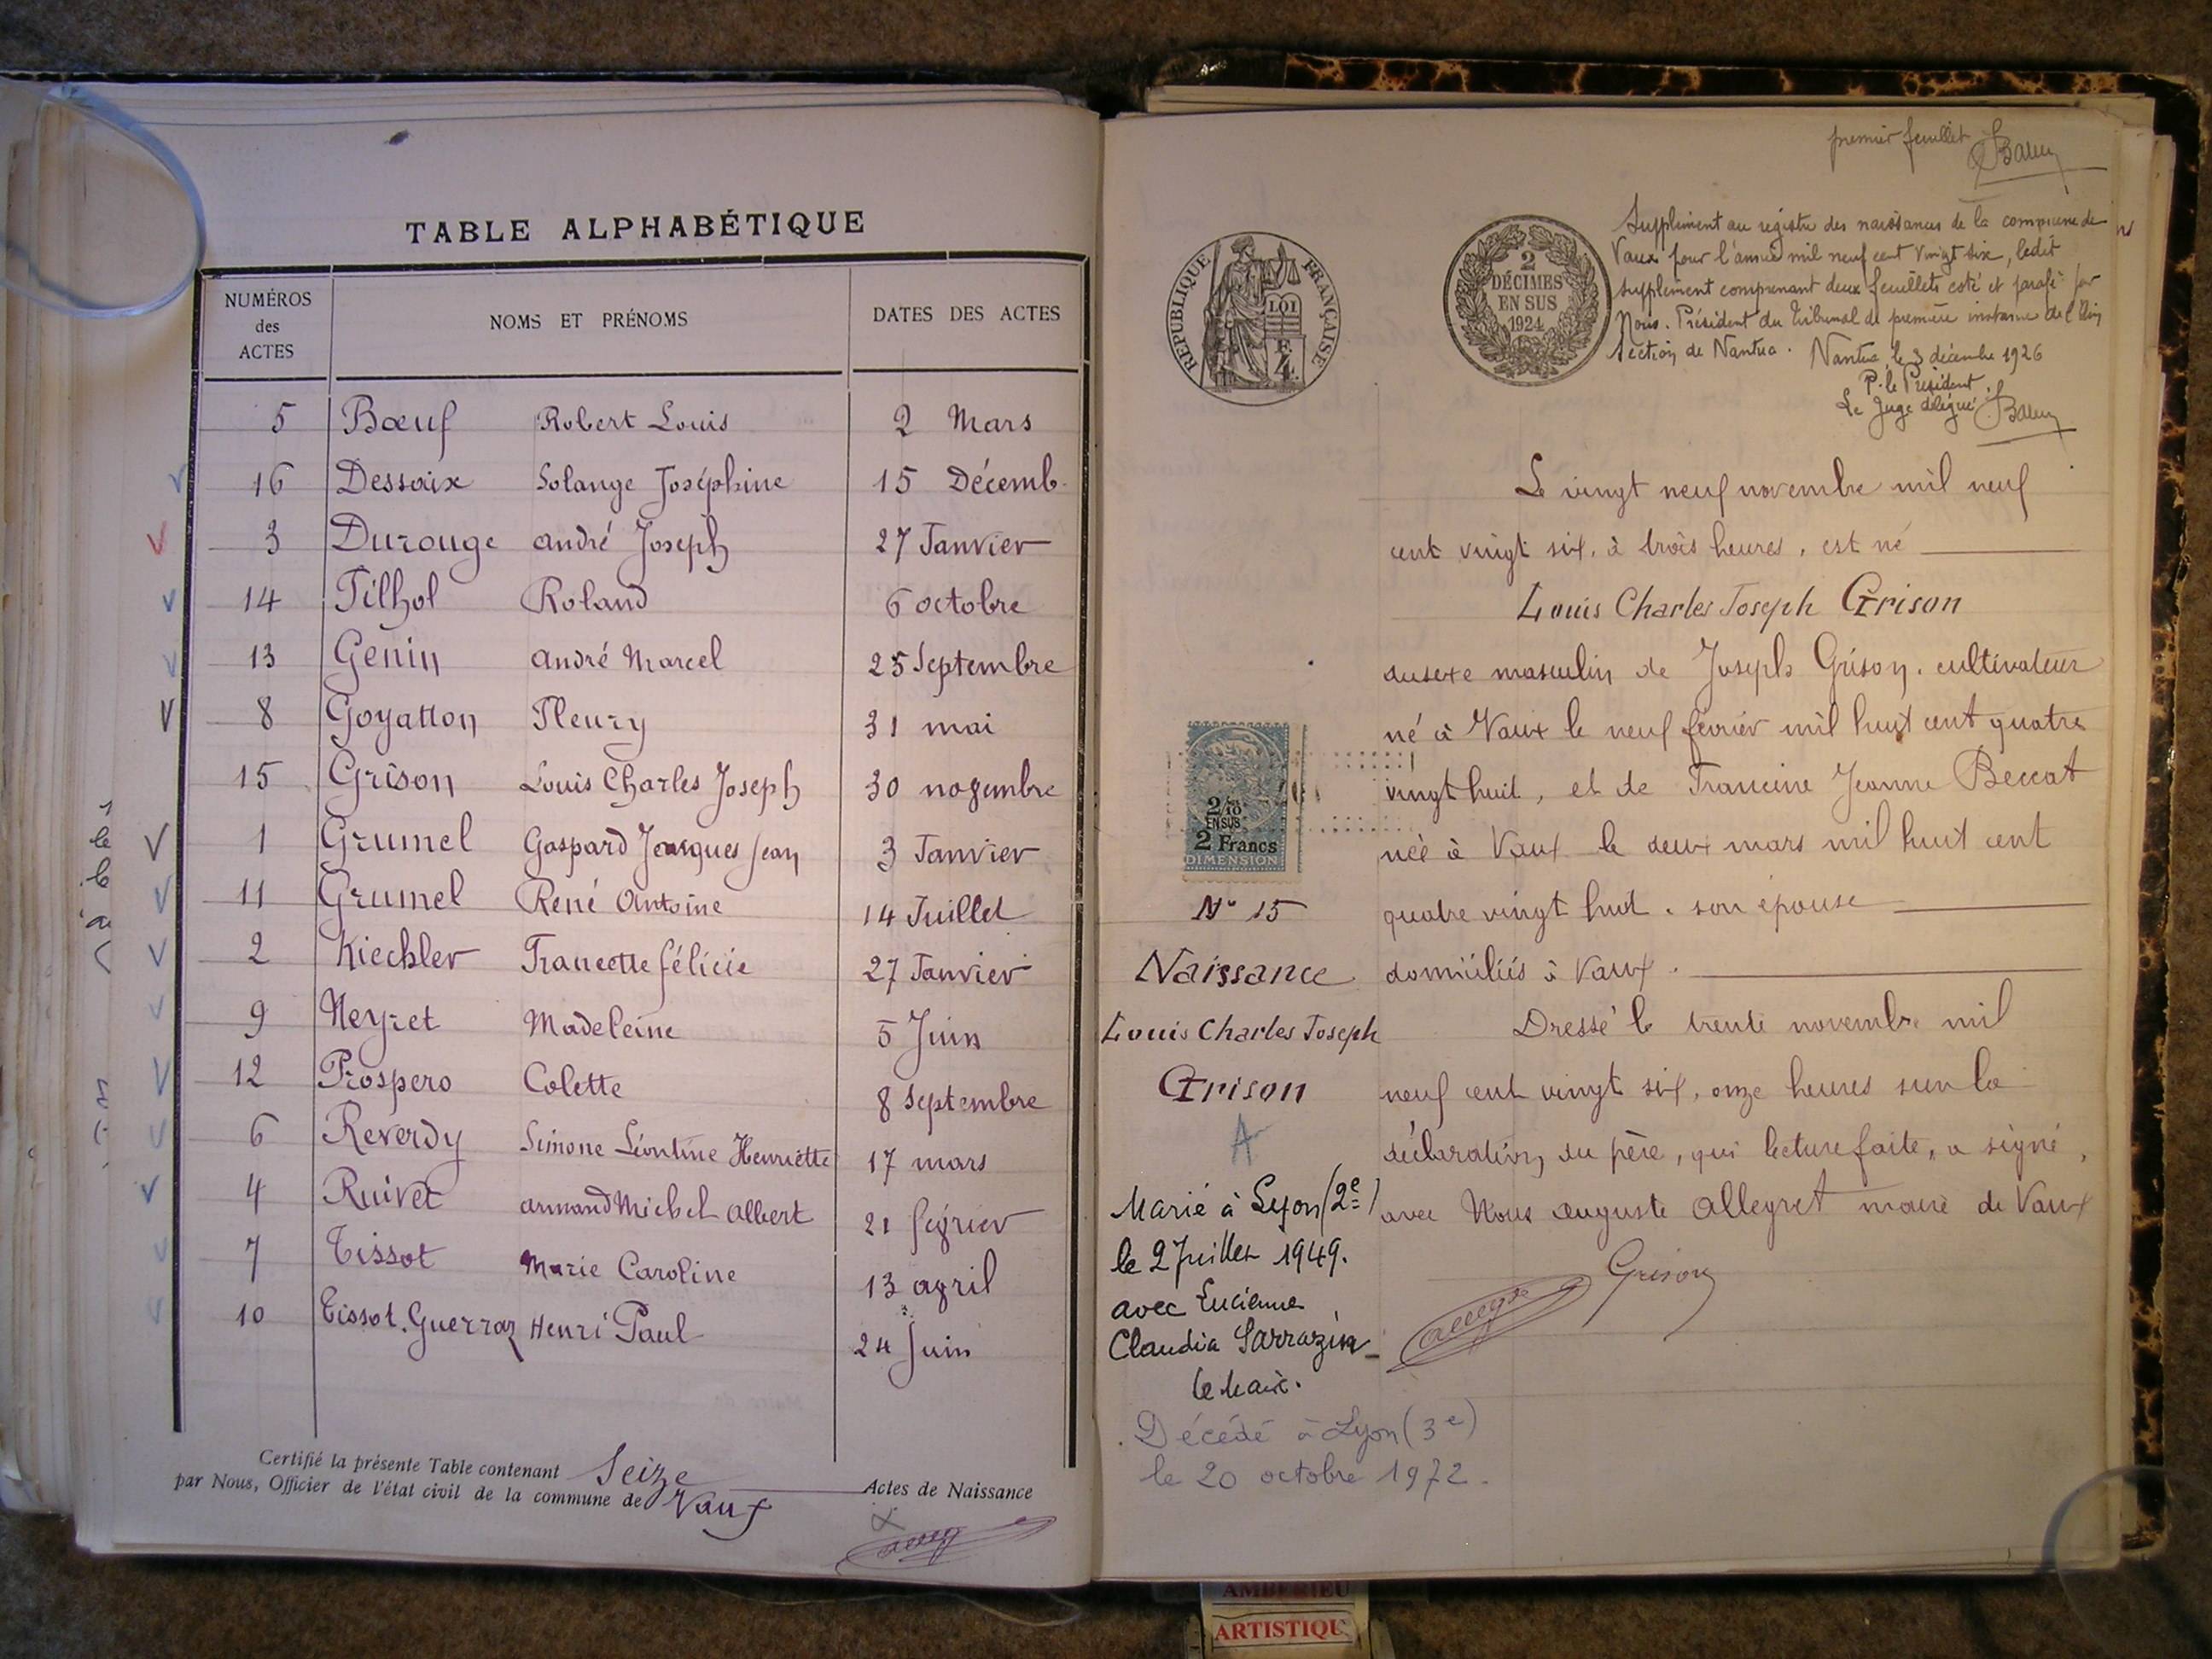 TABLE ALPHABÉTIQUE
NUMÉROS
des
ACTES
NOMS ET PRÉNOMS
DATES DES ACTES
5 Bœuf Robert Louis 2 Mars
16 Dessaix Solange Joséphine 15 Décemb.
3 Durouge André Joseph 27 Janvier
14 Filhol Roland 6 octobre
13 Génin André Marcel 25 Septembre
8 Goyatton Fleury 31 mai
15 Grison Louis Charles Joseph 30 novembre
1 Grumel Gaspard Jacques Jean 3 Janvier
11 Grumel René Antoine 14 Juillet
2 Kiechler Francette Félicie 27 Janvier
9 Neyret Madeleine 5 Juin
12 Prospero Colette 8 Septembre
6 Reverdy Simone Léontine Henriette 17 mars
4 Ruivet Armand Michel Albert 21 février
7 Tissot Marie Caroline 13 avril
10 Tissot.Guerraz Henri Paul 24 Juin
Certifié la présente Table contenant Seize Actes de Naissance
par Nous, Officier de l'état civil de la commune de Vaux
premier feuillet
RÉPUBLIQUE FRANÇAISE
LOI
2
DÉCIMES
EN SUS
1924
Supplément au registre des naissances de la commune de
Vaux pour l'année mil neuf cent vingt six, ledit
supplément comprenant deux feuillets coté et parafé par
Nous. Président du Tribunal de première instance de l'Ain
Section de Nantua. Nantua, le 3 décembre 1926
P. le Président
Le Juge délégué
Le vingt neuf novembre mil neuf
cent vingt six, à trois heures, est né
Louis Charles Joseph Grison
du sexe masculin de Joseph Grison, cultivateur
né à Vaux le neuf février mil huit cent quatre
vingt huit, et de Francine Jeanne Beccat
née à Vaux le deux mars mil huit cent
quatre vingt huit, son épouse
domiciliés à Vaux.
Dressé le trente novembre mil
neuf cent vingt six, onze heures sur la
déclaration du père, qui lecture faite, a signé,
avec Nous Auguste Alleyret maire de Vaux
Grison
2/10
EN SUS
2 Francs
DIMENSION
N° 15
Naissance
Louis Charles Joseph
Grison
A
Marié à Lyon (2e)
le 2 Juillet 1949.
avec Lucienne
Claudia Sarrazin
le Maire.
Décédé à Lyon (3e)
le 20 octobre 1972.
AMBERIEU
ARTISTIQU